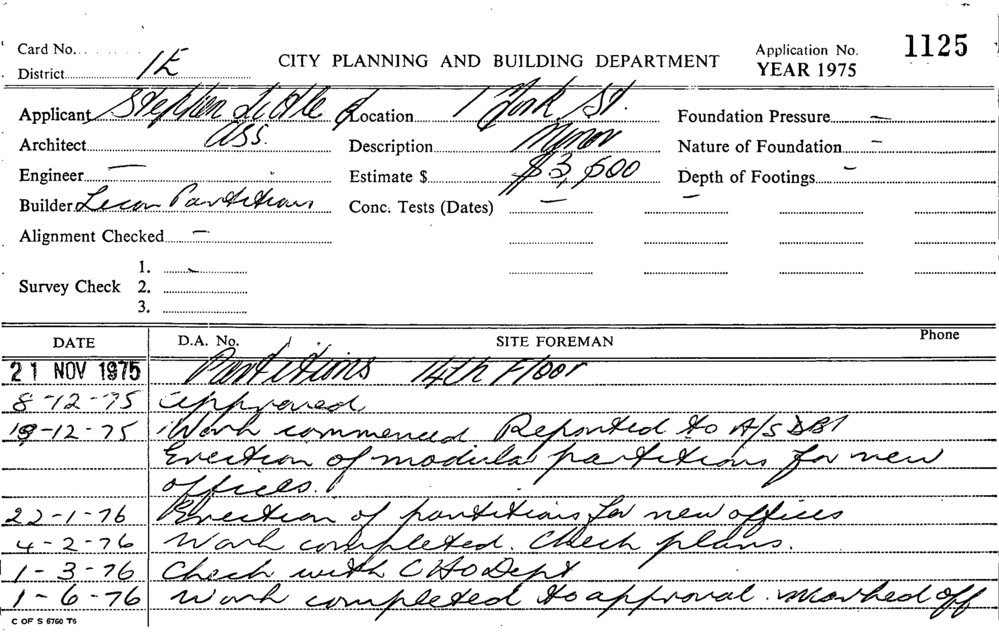 Card No.
District 1E
CITY PLANNING AND BUILDING DEPARTMENT
Application No. 1125
YEAR 1975
Applicant Stephen Little & Ass.
Location 1 York St.
Foundation Pressure —
Architect
Description Minor
Nature of Foundation —
Engineer —
Estimate $ $3,500
Depth of Footings —
Builder Lecon Partitions
Conc. Tests (Dates) — —
Alignment Checked —
Survey Check
1.
2.
3.
DATE D.A. No. SITE FOREMAN Phone
21 NOV 1975 Partitions 14th Floor
8-12-75 Approved
19-12-75 Work commenced. Reported to A/S DBI
Erection of modular partitions for new
offices.
22-1-76 Erection of partitions for new offices
4-2-76 Work completed. Check plans.
1-3-76 Check with CHO Dept
1-6-76 Work completed to approval. Marked off
C OF S 6760 T5